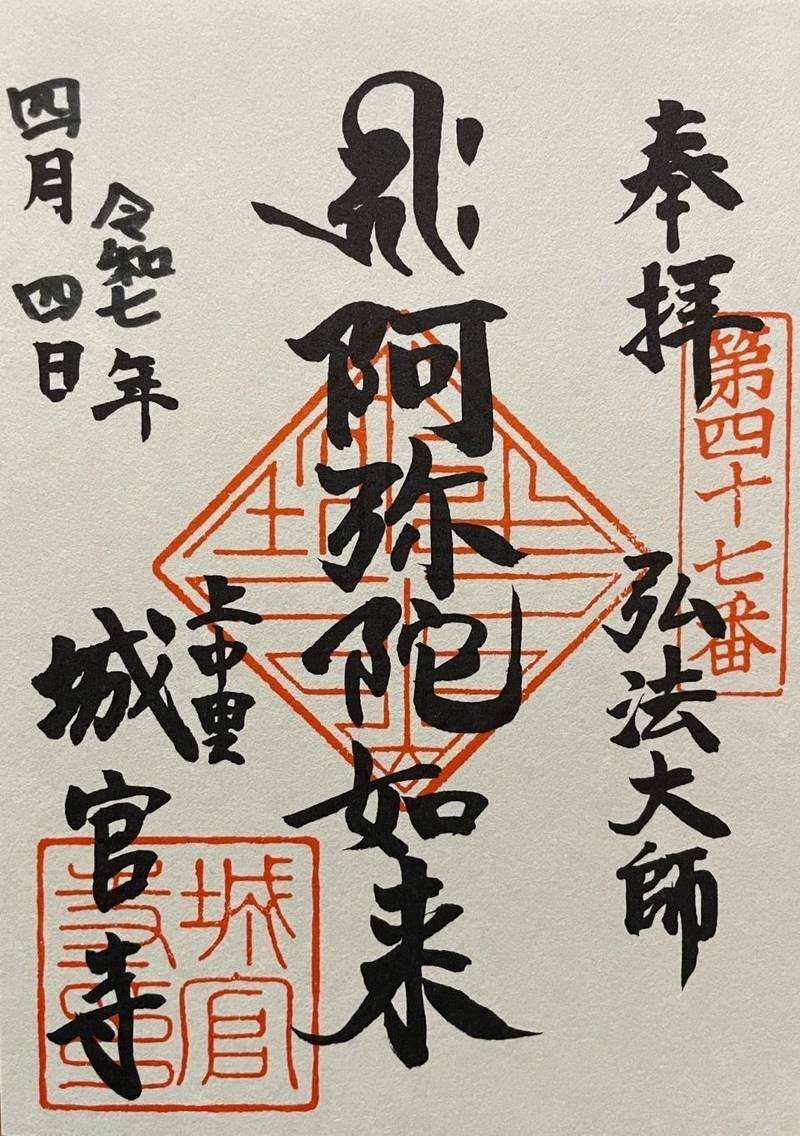 奉拝
第四十七番
弘法大師
𑖮𑖿𑖨𑖱𑖾
阿弥陀如来
上中里
城官寺
令和七年
四月四日
城官
寺